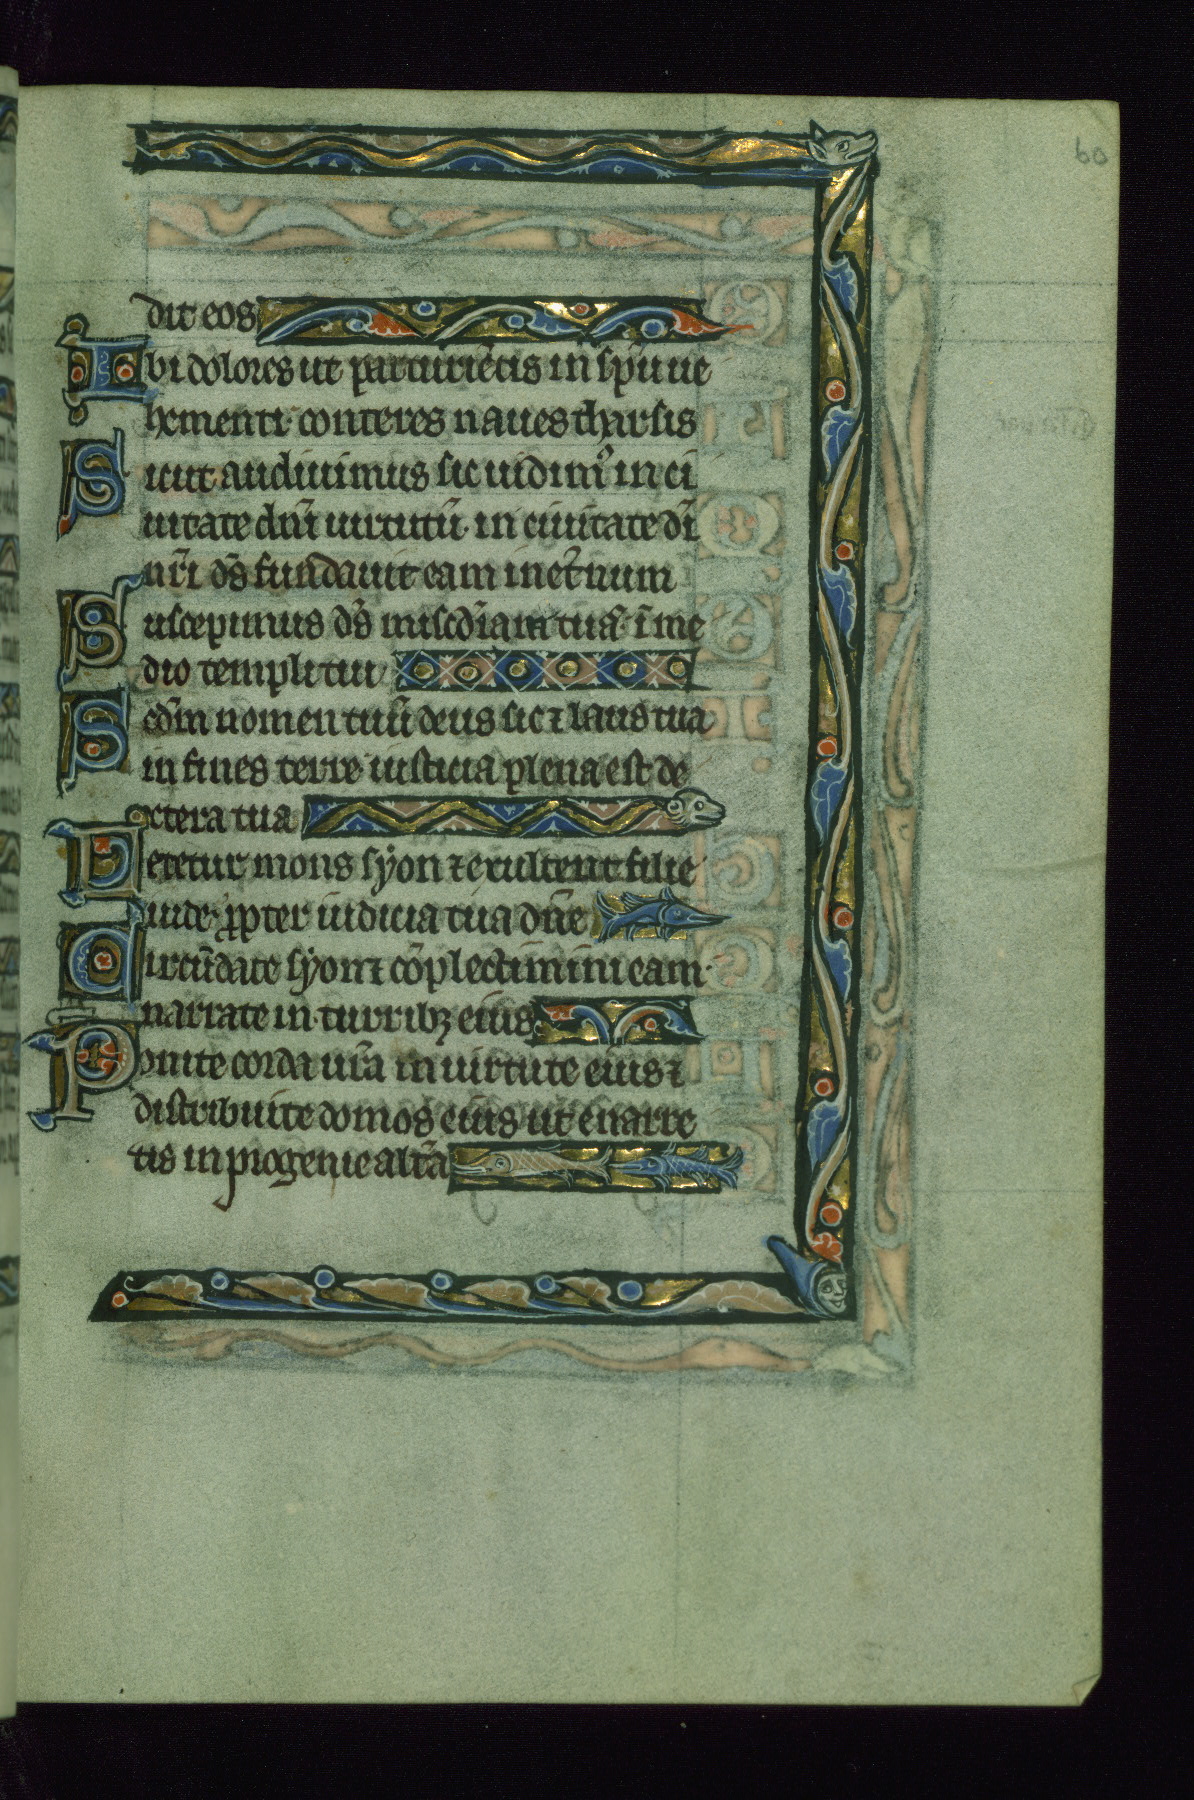 60
dit eos
Ibi dolores ut parturiētis in sp̄u ue
hementi conteres naues tharsis
Sicut audiuimus sic uidim᷒ in ci
uitate dn̄i uirtutū in ciuitate dī
nr̄i ds̄ fundauit eam in et̄num
Suscepimus ds̄ misc̄diam tuā ī me
dio templi tui
Scd̄m nomen tuū deus sic ⁊ laus tua
in fines terre iusticia plena est de
xtera tua
Letetur mons syon ⁊ exultent filie
iude ꝓpter iudicia tua dn̄e
Circūdate syon ⁊ cōplectimini eam
narrate in turribꝫ eius
Ponite corda ur̄a in uirtute eius ⁊
distribuite domos eius ut enarre
tis in progenie alt̄a